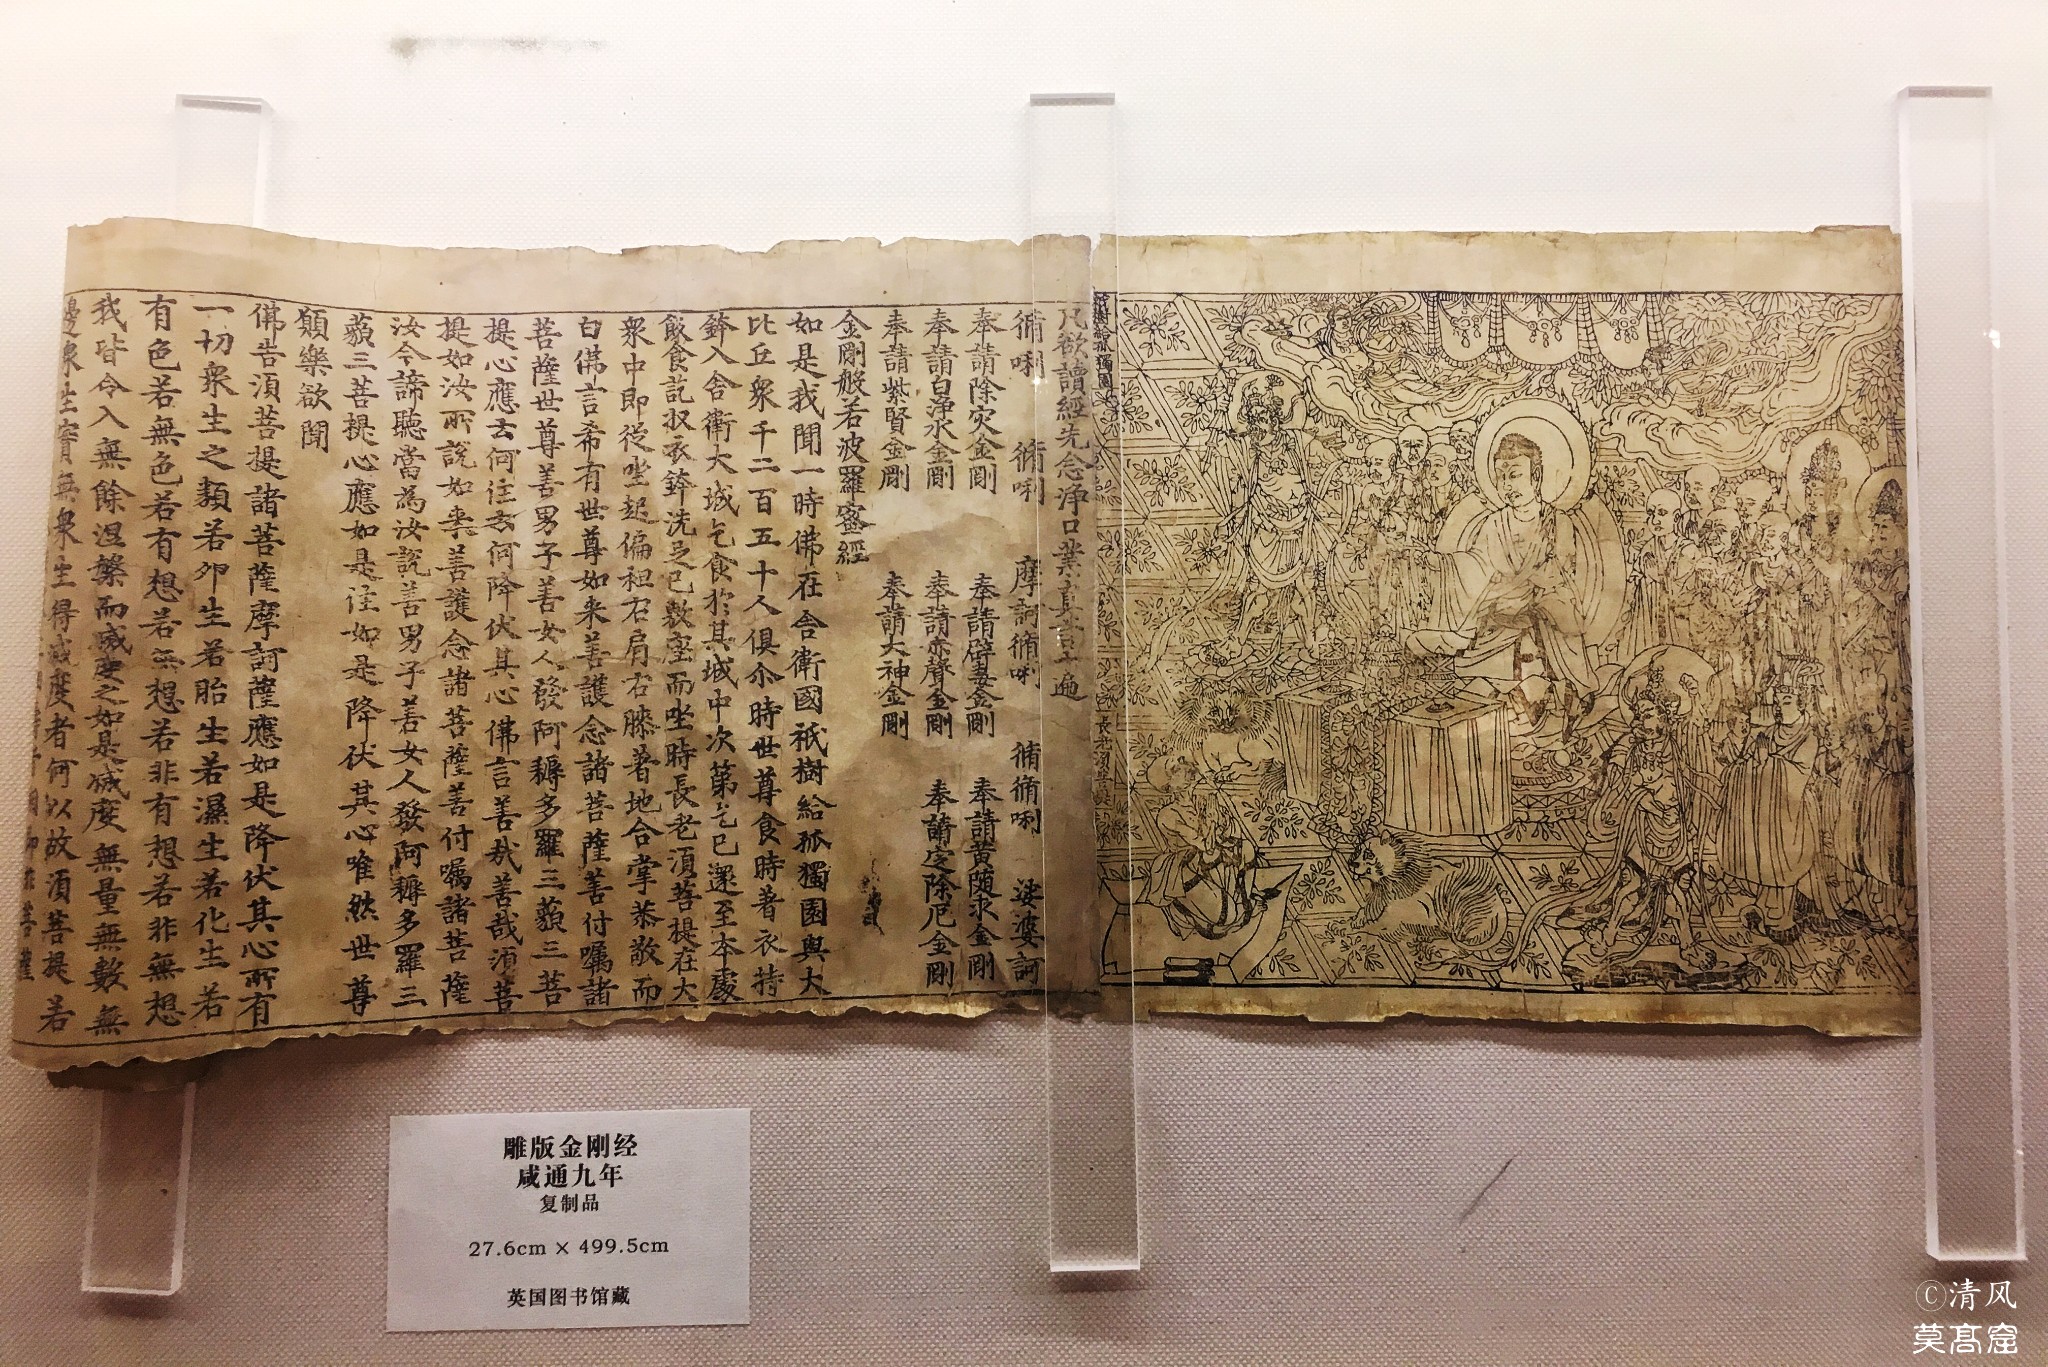 祇樹給孤獨園
長老須菩提
凡欲讀經先念淨口業真言一遍
脩唎 脩唎 摩訶脩唎 脩脩唎 娑婆訶
奉請除灾金剛 奉請辟毒金剛 奉請黄随求金剛
奉請白淨水金剛 奉請赤聲金剛 奉請定除厄金剛
奉請紫賢金剛 奉請大神金剛
金剛般若波羅蜜經
如是我聞一時佛在舍衛國祇樹給孤獨園與大
比丘衆千二百五十人俱尒時世尊食時著衣持
鉢入舍衛大城乞食於其城中次第乞已還至本處
飯食訖収衣鉢洗足已敷座而坐時長老湏菩提在大
衆中即從坐起偏袒右肩右膝著地合掌恭敬而
白佛言希有世尊如来善護念諸菩薩善付囑諸
菩薩世尊善男子善女人發阿耨多羅三藐三菩
提心應云何住云何降伏其心佛言善哉善哉湏菩
提如汝所說如来善護念諸菩薩善付囑諸菩薩
汝今諦聽當為汝說善男子善女人發阿耨多羅三
藐三菩提心應如是住如是降伏其心唯然世尊
願樂欲聞
佛告湏菩提諸菩薩摩訶薩應如是降伏其心所有
一切衆生之類若夘生若胎生若濕生若化生若
有色若無色若有想若无想若非有想若非無想
我皆令入無餘涅槃而滅度之如是滅度無量無數無
邊衆生實無衆生得滅度者何以故湏菩提若
菩薩
雕版金刚经
咸通九年
复制品
27.6cm × 499.5cm
英国图书馆藏
©清风
莫高窟